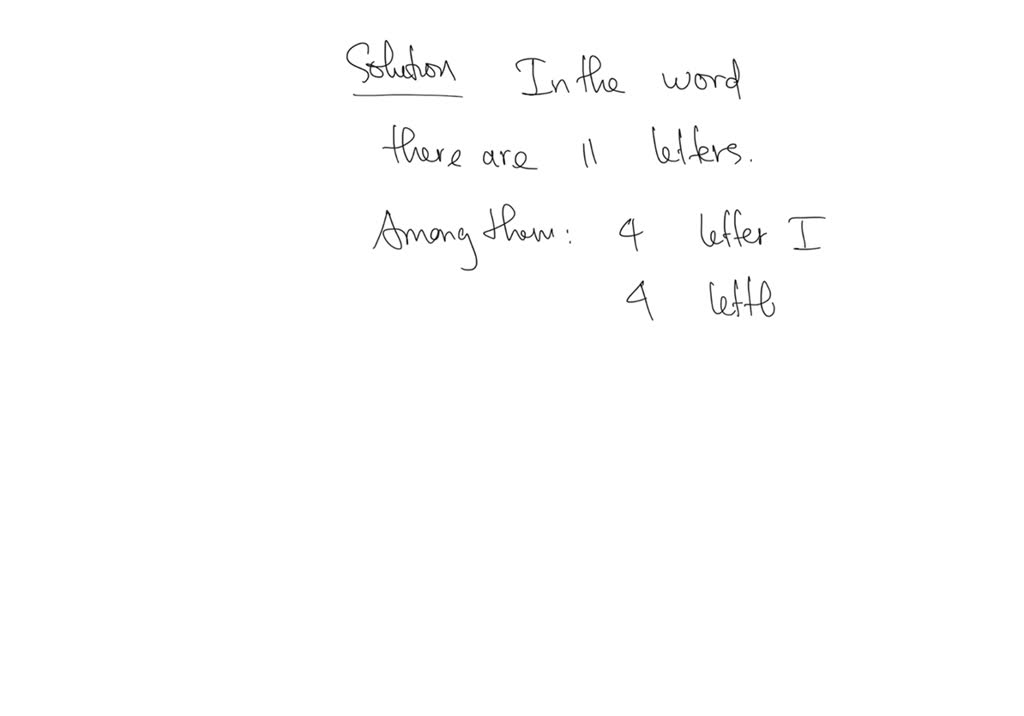 Solution In the word
there are 11 letters.
Among them: 4 letter I
4 lette